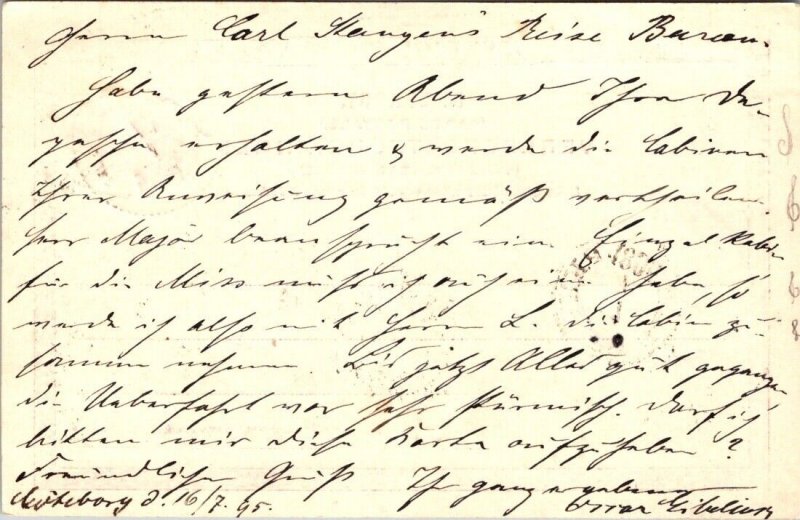 Herrn Carl Stangen's Reise Bureau.
Habe gestern Abend Ihre De-
pesche erhalten & werde die Cabinen
Ihrer Anweisung gemäß vertheilen.
Herr Major beansprucht eine Einzel Kabine
für die Miss muß ich auch eine haben, so
werde ich also mit Herrn L. die Cabin zu-
sammen nehmen. Bis jetzt Alles gut gegangen
die Ueberfahrt war sehr stürmisch. Darf ich
bitten mir diese Karte aufzuheben?
Freundlichen Gruß Ihr ganz ergebener
Göteborg d. 16/7. 95. Oscar